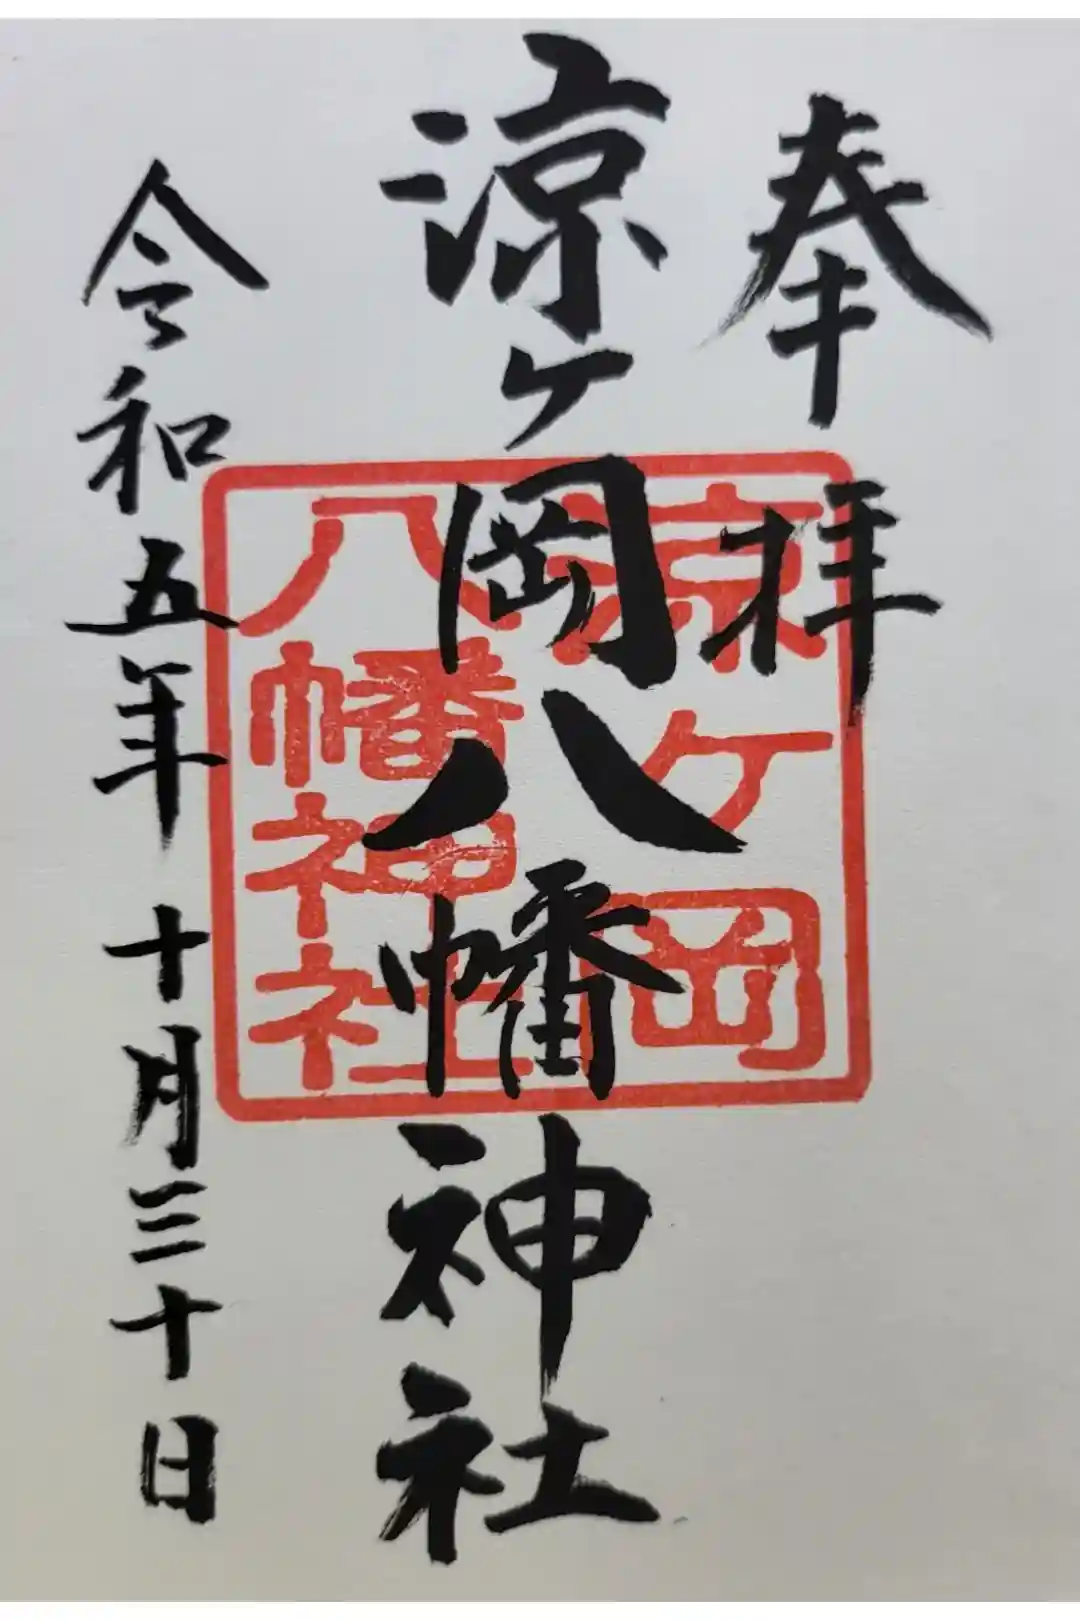 奉拝
涼ケ岡八幡神社
令和五年十月三十日
涼ケ岡
八幡神社